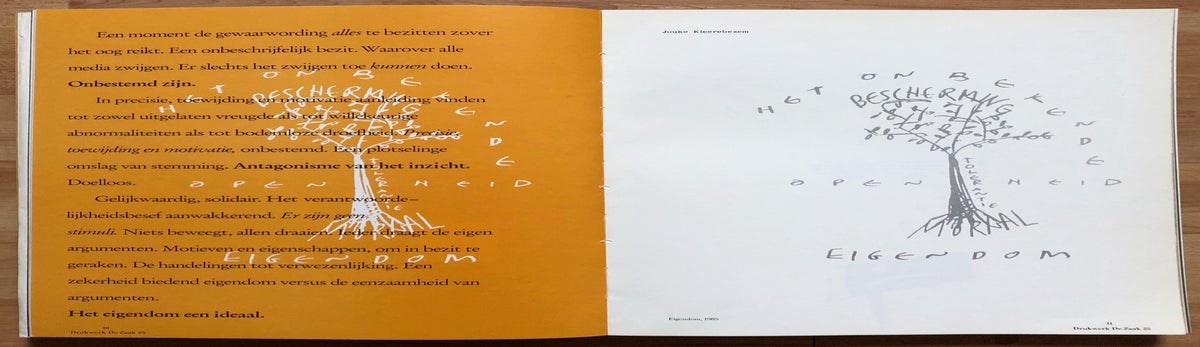 Een moment de gewaarwording alles te bezitten zover
het oog reikt. Een onbeschrijfelijk bezit. Waarover alle
media zwijgen. Er slechts het zwijgen toe kunnen doen.
Onbestemd zijn.
In precisie, toewijding en motivatie aanleiding vinden
tot zowel uitgelaten vreugde als tot willekeurige
abnormaliteiten als tot bodemloze droefheid. Precisie,
toewijding en motivatie, onbestemd. Een plotselinge
omslag van stemming. Antagonisme van het inzicht.
Doelloos.
Gelijkwaardig, solidair. Het verantwoorde-
lijkheidsbesef aanwakkerend. Er zijn geen
stimuli. Niets beweegt, allen draaien. Ieder draagt de eigen
argumenten. Motieven en eigenschappen, om in bezit te
geraken. De handelingen tot verwezenlijking. Een
zekerheid biedend eigendom versus de eenzaamheid van
argumenten.
Het eigendom een ideaal.
10
Drukwerk De Zaak 25
HET ONBEKENDE
BESCHERMING
OPENHEID
TOLERANTIE
MORAAL
EIGENDOM
Jouke Kleerebezem
HET ONBEKENDE
BESCHERMING
OPENHEID
TOLERANTIE
MORAAL
EIGENDOM
Eigendom, 1985
11
Drukwerk De Zaak 25